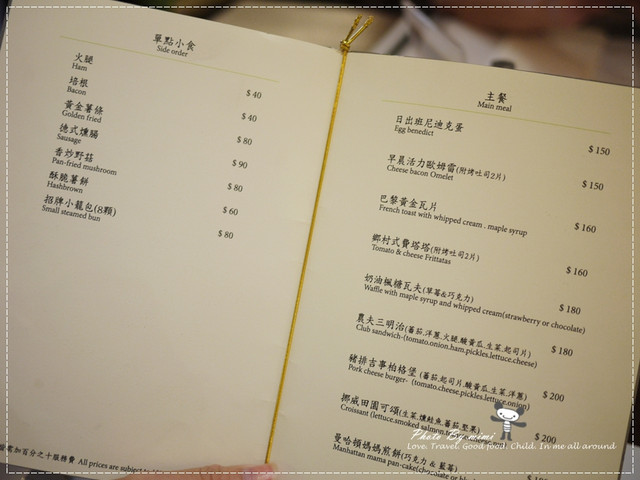 單點小食
Side order
火腿
Ham
$ 40
培根
Bacon
$ 40
黃金薯條
Golden fried
$ 80
德式燻腸
Sausage
$ 90
香炒野菇
Pan-fried mushroom
$ 80
酥脆薯餅
Hashbrown
$ 60
招牌小籠包(8顆)
Small steamed bun
$ 80
加百分之十服務費 All prices are subject
主餐
Main meal
日出班尼迪克蛋
Egg benedict
$ 150
早晨活力歐姆雷(附烤吐司2片)
Cheese bacon Omelet
$ 150
巴黎黃金瓦片
French toast with whipped cream . maple syrup
$ 160
鄉村式費塔塔(附烤吐司2片)
Tomato & cheese Frittatas
$ 160
奶油楓糖瓦夫(草莓&巧克力)
Waffle with maple syrup and whipped cream(strawberry or chocolate)
$ 180
農夫三明治(蕃茄.洋蔥.火腿.酸黃瓜.生菜.起司片)
Club sandwich-(tomato.onion.ham.pickles.lettuce.cheese)
$ 180
豬排吉事柏格堡(蕃茄.起司片.酸黃瓜.生菜.洋蔥)
Pork cheese burger- (tomato.cheese.pickles.lettuce.onion)
$ 200
挪威田園可頌(生菜.燻鮭魚.蕃茄.堅果)
Croissant (lettuce.smoked salmon.
$ 200
曼哈頓媽媽煎餅(巧克力 & 藍莓)
Manhattan mama pan-cake(chocolate or
Photo By mimi
Love. Travel. Good food. Child. In me all around